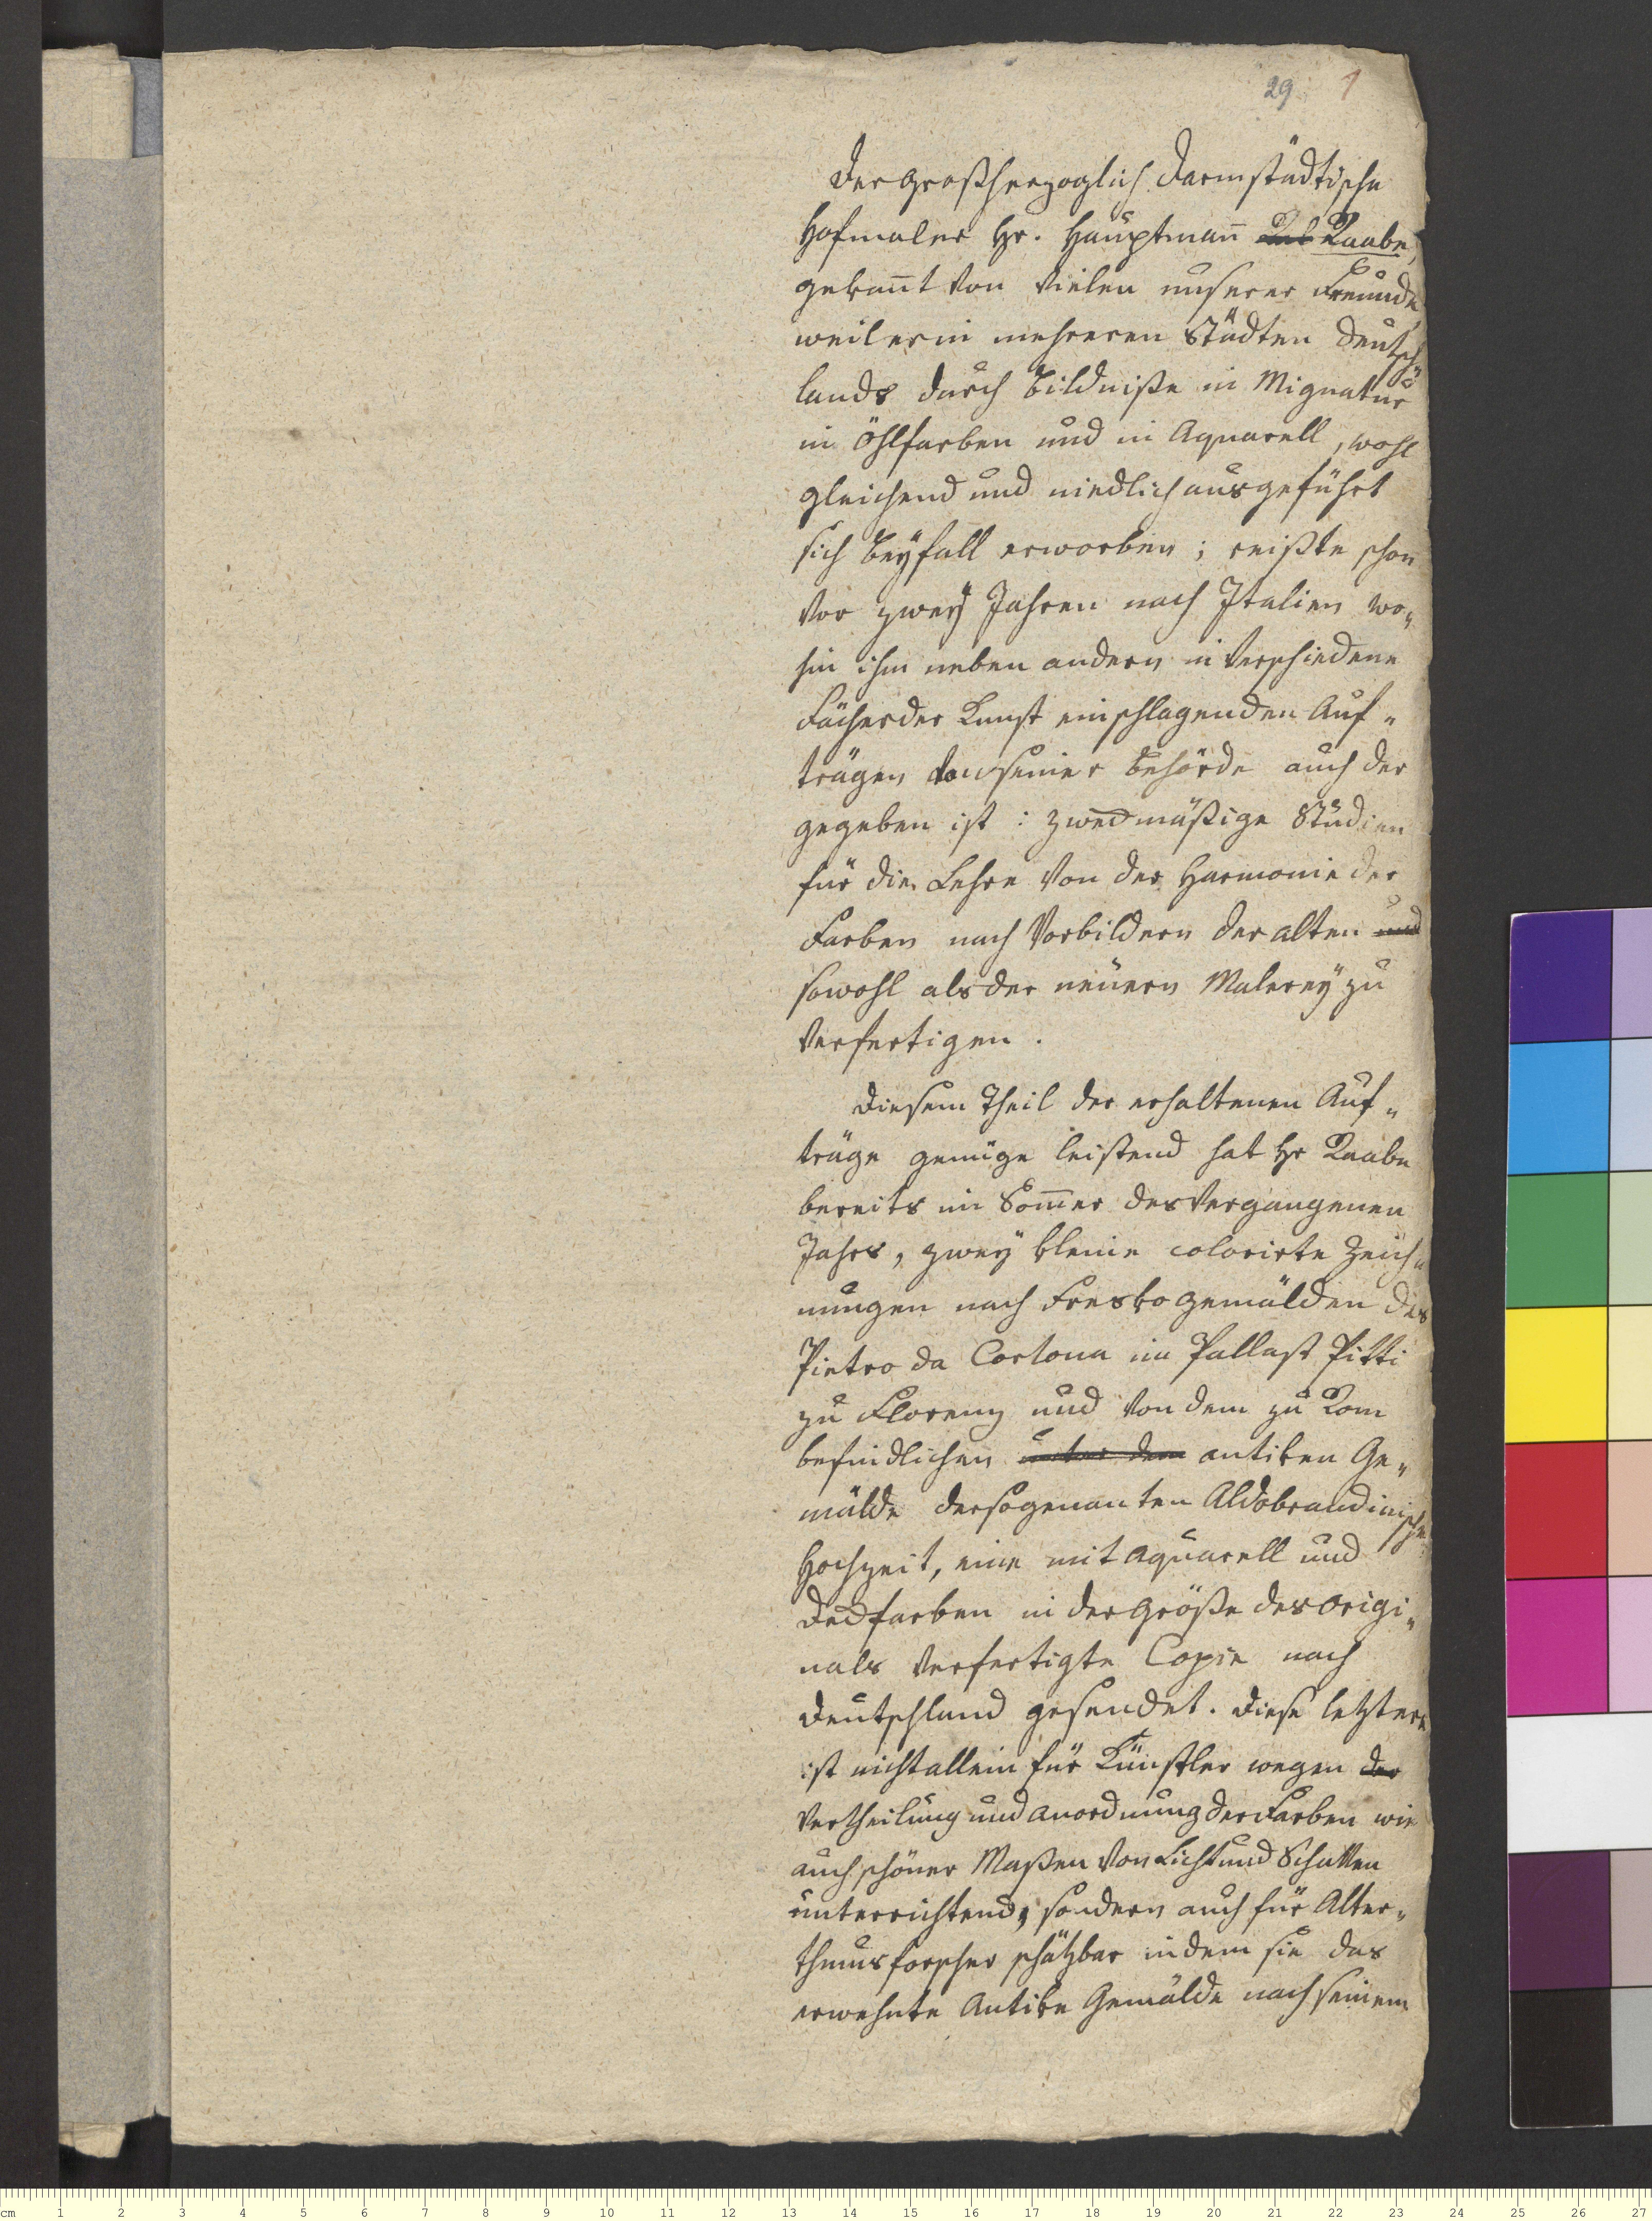 29 1
Der Großherzoglich Darmstädtische
Hofmaler Hr. Hauptman̄ Rab Raabe,
gekan̄t von vielen unserer Freunde
weil er in mehreren Städten Deutsch
lands durch Bildniße in Mignatur
in Öhlfarben und in Aquarell, wohl
gleichend und niedlich ausgeführt
sich Beyfall erworben; reißte schon
vor zwey Jahren nach Italien wo„
hin ihm neben andern in verschiedene
Fächer der Kunst einschlagenden Auf„
trägen von seiner Behörde auch der
gegeben ist: zweckmäßige Studien
für die Lehre von der Harmonie der
Farben nach Vorbildern der alten und
sowohl als der neuern Malerey zu
verfertigen.
Diesem Theil der erhaltenen Auf„
träge genüge leistend hat Hr Raabe
bereits im Som̄er des vergangenen
Jahrs, zwey kleine colorirte Zeich„
nungen nach Freskogemälden des
Pietro da Cortona im Pallast Pitti
zu Florenz und von dem zu Rom
befindlichen unter dem antiken Ge„
mälde der sogenanten Aldobrandinischen
Hochzeit, eine mit Aquarell und
Deckfarben in der Größe des Origi„
nals verfertigte Copie nach
Deutschland gesendet. Diese letztere
ist nicht allein für Künstler wegen der
Vertheilung und Anordnung der Farben wie
auch schöner Maßen von Licht und Schatten
unterrichtend, sondern auch für Alter„
thumsforscher schätzbar indem sie das
erwehnte Antike Gemälde nach seinem
cm 1 2 3 4 5 6 7 8 9 10 11 12 13 14 15 16 17 18 19 20 21 22 23 24 25 26 27